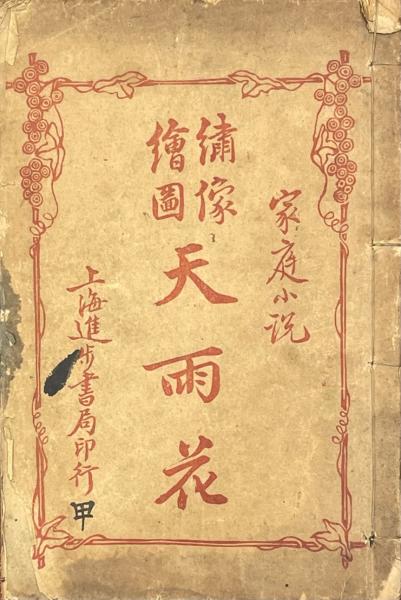 家庭小说
繡像
繪圖
天雨花
上海進步書局印行
甲